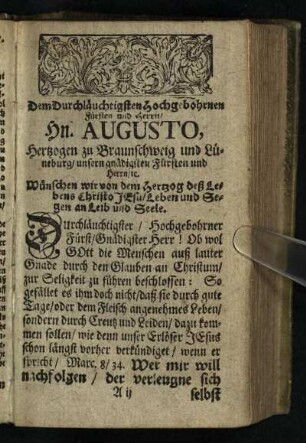 Dem Durchläuchtigsten Hochgebohrnen
Fürsten und Herrn/
Hn. AUGUSTO,
Hertzogen zu Braunschweig und Lü-
neburg/ unsern gnädigsten Fürsten und
Herrn/ꝛc.
Wünschen wir von dem Hertzog deß Le-
bens Christo JEsu/Leben und Se-
gen an Leib und Seele.
Durchläuchtigster / Hochgebohrner
Fürst/Gnädigster Herr ! Ob wol
GOtt die Menschen auß lauter
Gnade durch den Glauben an Christum/
zur Seligkeit zu führen beschlossen : So
gefället es ihm doch nicht/daß sie durch gute
Tage/oder dem Fleisch angenehmes Leben/
sondern durch Creutz und Leiden/ dazu kom-
men sollen/ wie denn unser Erlöser JEsus
schon längst vorher verkündiget/ wenn er
spricht/ Marc. 8/34. Wer mir will
nachfolgen / der verleugne sich
A ij selbst